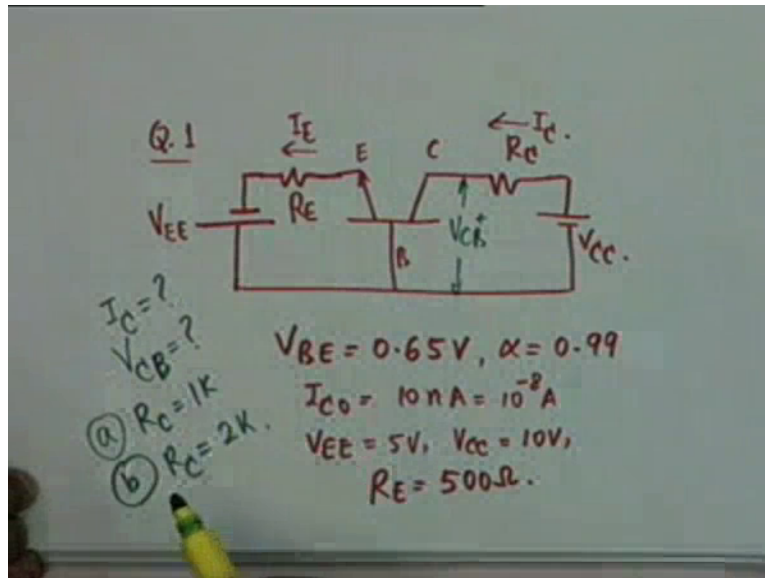 Q.1
I_E
←
E
C
← I_C.
R_C
R_E
V_EE
B
V_CB
+
V_CC.
I_C = ?
V_CB = ?
(a) R_C = 1K
(b) R_C = 2K.
V_BE = 0.65V, α = 0.99
I_CO = 10nA = 10^-8 A
V_EE = 5V, V_CC = 10V,
R_E = 500Ω.